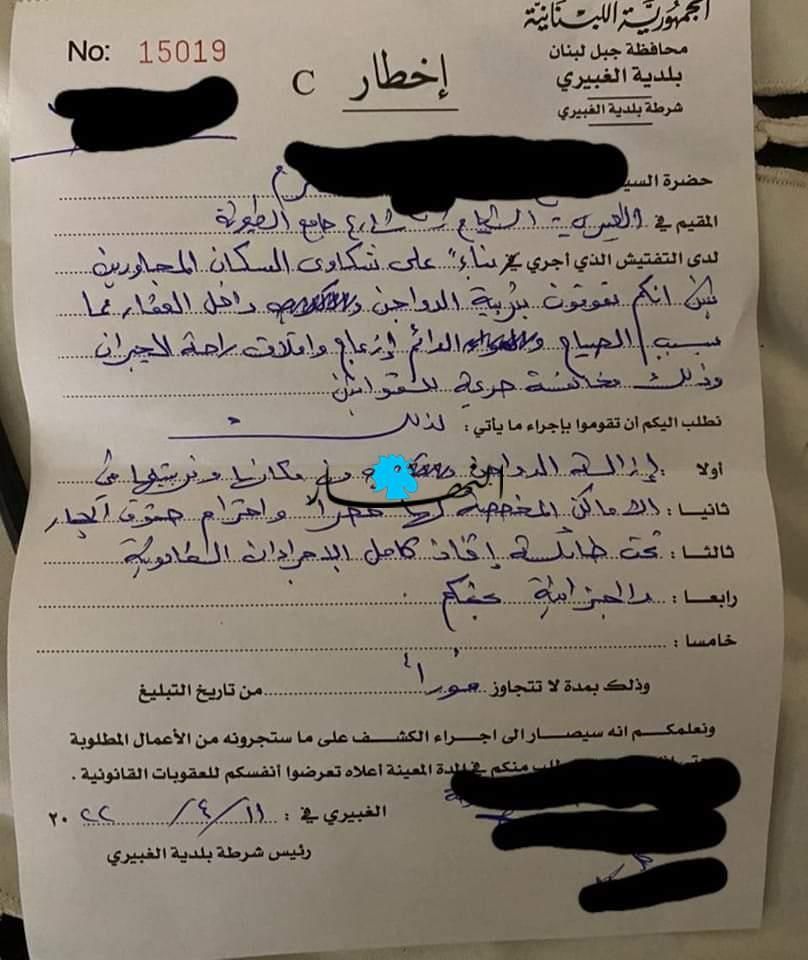 الجمهورية اللبنانية
محافظة جبل لبنان
بلدية الغبيري
شرطة بلدية الغبيري
No: 15019
إخطار C
حضرة السيد
المقيم في الغبيري - الشياح شارع جامع الطيونة
لدى التفتيش الذي أجري في بناءً على شكاوى السكان المجاورين
تبين انكم تقومون بتربية الدواجن داخل العقار مما
يسبب الصياح الدائم إزعاج واقلاق راحة الجيران
وذلك مخالفة صريحة للقوانين
نطلب اليكم أن تقوموا بإجراء ما يأتي: لذلك
أولا: إزالة الدواجن من مكانها وتربيتها في
ثانيا: الاماكن المخصصة لها حصراً واحترام حقوق الجار
ثالثا: تحت طائلة إتخاذ كامل الاجراءات القانونية
رابعا: والجزائية بحقكم.
خامسا:
النهار
وذلك بمدة لا تتجاوز فوراً من تاريخ التبليغ
ونعلمكم انه سيصار الى اجراء الكشف على ما ستجرونه من الأعمال المطلوبة
منكم في المدة المعينة أعلاه تعرضوا أنفسكم للعقوبات القانونية.
الغبيري في: ١١/٤/٢٠٢٢
رئيس شرطة بلدية الغبيري